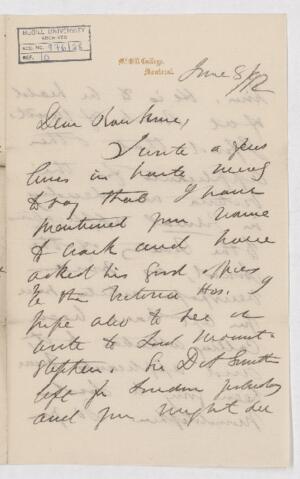 McGILL UNIVERSITY
ARCHIVES
ACC. NO.
REF.
McGill College,
Montreal.
June 8/92
Dear
I write a few
lines in haste merely
to say that I have
mentioned your name
to and have
asked his good offices
the Victoria Hos. I
hope also to see or
write to Lord Mount-
Stephen. Sir D A Smith
left for London yesterday
and you might see